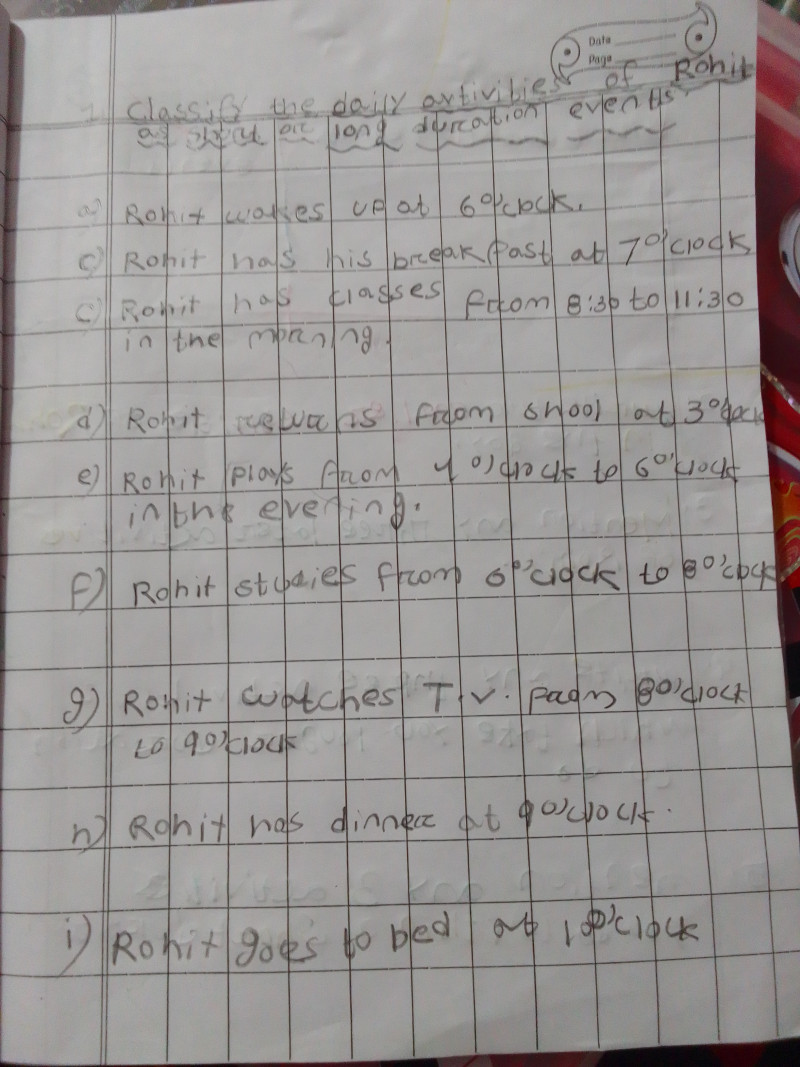 Data
Page
1. Classify the daily artivities of Rohit
as short or long duration events.
a) Rohit wakes up at 6 O'clock.
c) Rohit has his breakfast at 7 O'clock
c) Rohit has classes from 8:30 to 11:30
in the morning.
d) Rohit returns from shool at 3 O'clock
e) Rohit plays from 4 O'clock to 6 O'clock
in the evening.
f) Rohit studies from 6 O'clock to 8 O'clock
g) Rohit watches T.V. from 8 O'clock
to 9 O'clock
h) Rohit has dinner at 9 O'clock.
i) Rohit goes to bed at 10 O'clock